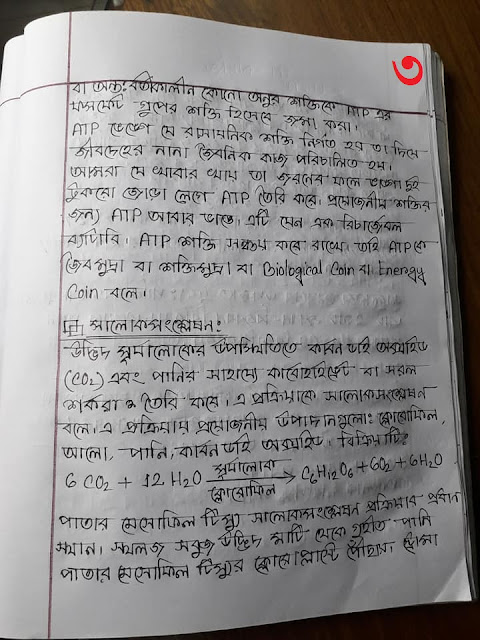 ৩
বা অন্তঃবর্তীকালীন কোনো অনুর শক্তিকে ATP এর
ফসফেট গ্রুপের শক্তি হিসেবে জমা করা।
ATP ভেঙ্গে যে রাসায়নিক শক্তি নির্গত হয় তা দিয়ে
জীবদেহের নানা জৈবনিক কাজ পরিচালিত হয়।
আমরা যে খাবার খায় তা জারনের ফলে ভাঙ্গা দুই
টুকরো জোড়া লেগে ATP তৈরি করে। প্রয়োজনীয় শক্তির
জন্য ATP আবার ভাঙে। এটি যেন এক রিচার্জেবল
ব্যাটারি। ATP শক্তি সঞ্চয় করে রাখে। তাই ATP কে
জৈবমুদ্রা বা শক্তিমুদ্রা বা Biological Coin বা Energy
Coin বলে।
সালোকসংশ্লেষন:
উদ্ভিদ সূর্যালোকের উপস্থিতিতে কার্বন ডাই অক্সাইড
(CO₂) এবং পানির সাহায্যে কার্বোহাইড্রেট বা সরল
শর্করা তৈরি করে। এ প্রক্রিয়াকে সালোকসংশ্লেষন
বলে। এ প্রক্রিয়ায় প্রয়োজনীয় উপাদানগুলো: ক্লোরোফিল,
আলো, পানি, কার্বন ডাই অক্সাইড। বিক্রিয়াটি:
6 CO₂ + 12 H₂O সূর্যালোক → ক্লোরোফিল C₆H₁₂O₆ + 6O₂ + 6H₂O
পাতার মেসোফিল টিস্যু সালোকসংশ্লেষন প্রক্রিয়ার প্রধান
স্থান। স্থলজ সবুজ উদ্ভিদ মাটি থেকে গৃহীত পানি
পাতার মেসোফিল টিস্যুর ক্লোরোপ্লাস্টে পৌঁছায়।